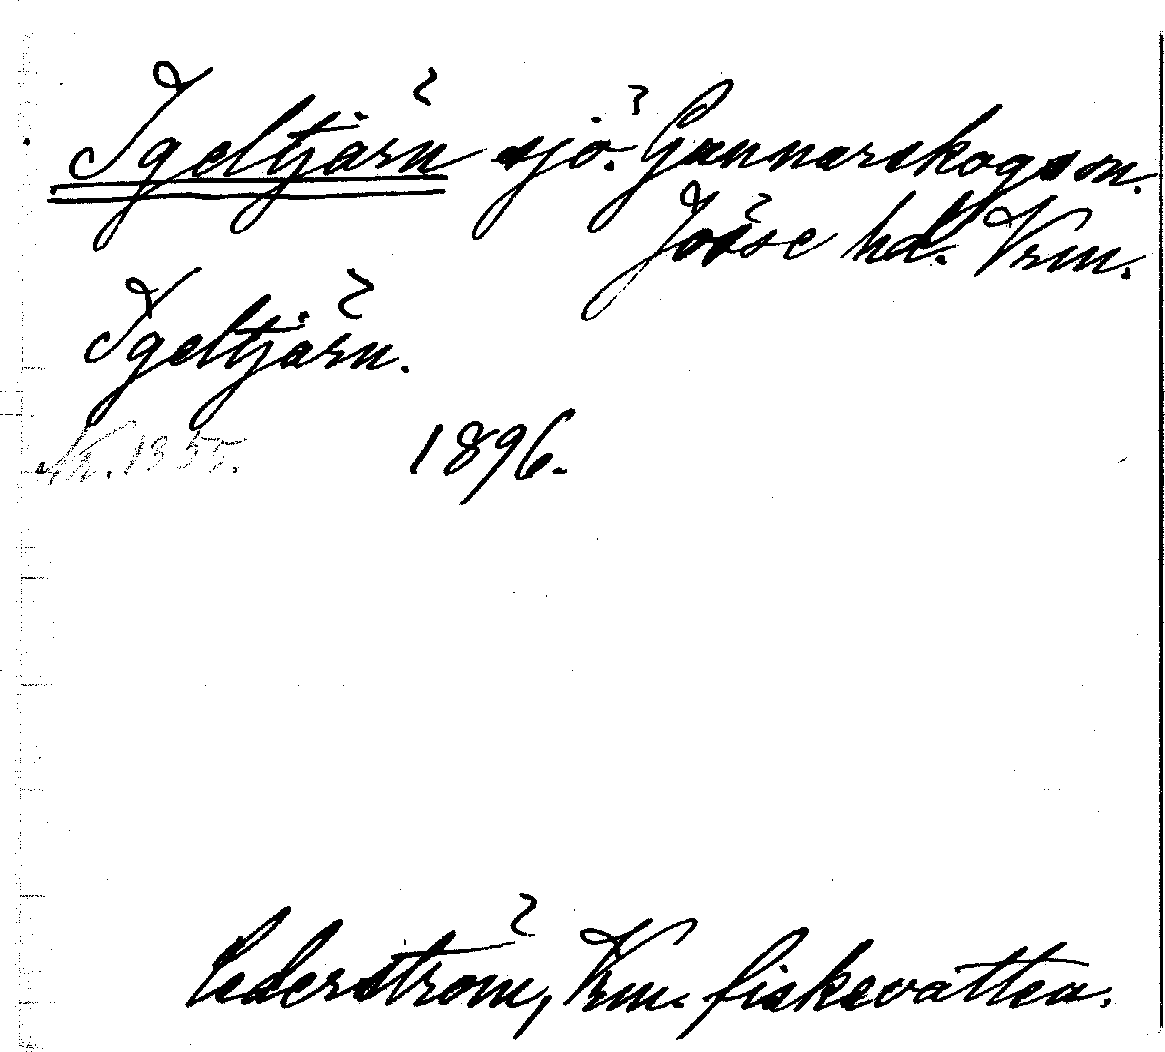 Igeltjärn sjö. Gunnarskogs sn.
Jösse hd. Vrm.
Igeltjärn.
Nr. 1355. 1896.
Cederström, Vrm. fiskevatten.